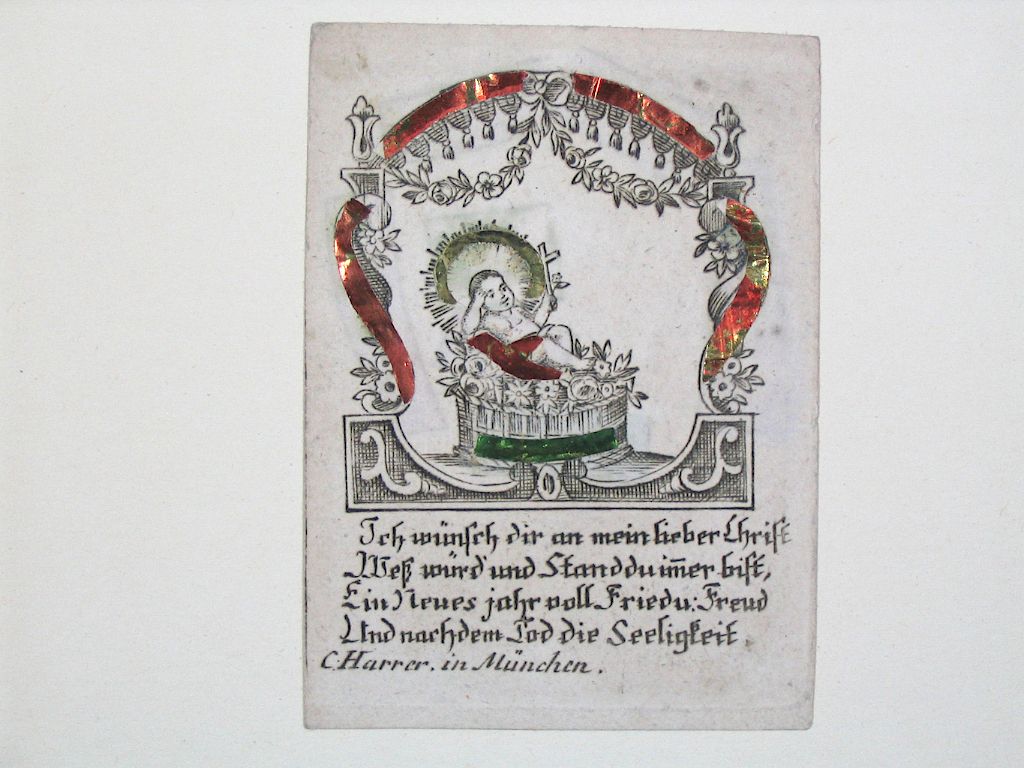 Ich wünsch dir an mein lieber Christ
Weß würd und Stand du im̅er bist,
Ein Neues jahr voll Fried u: Freud
Und nach dem Tod die Seeligkeit.
C. Harrer. in München.